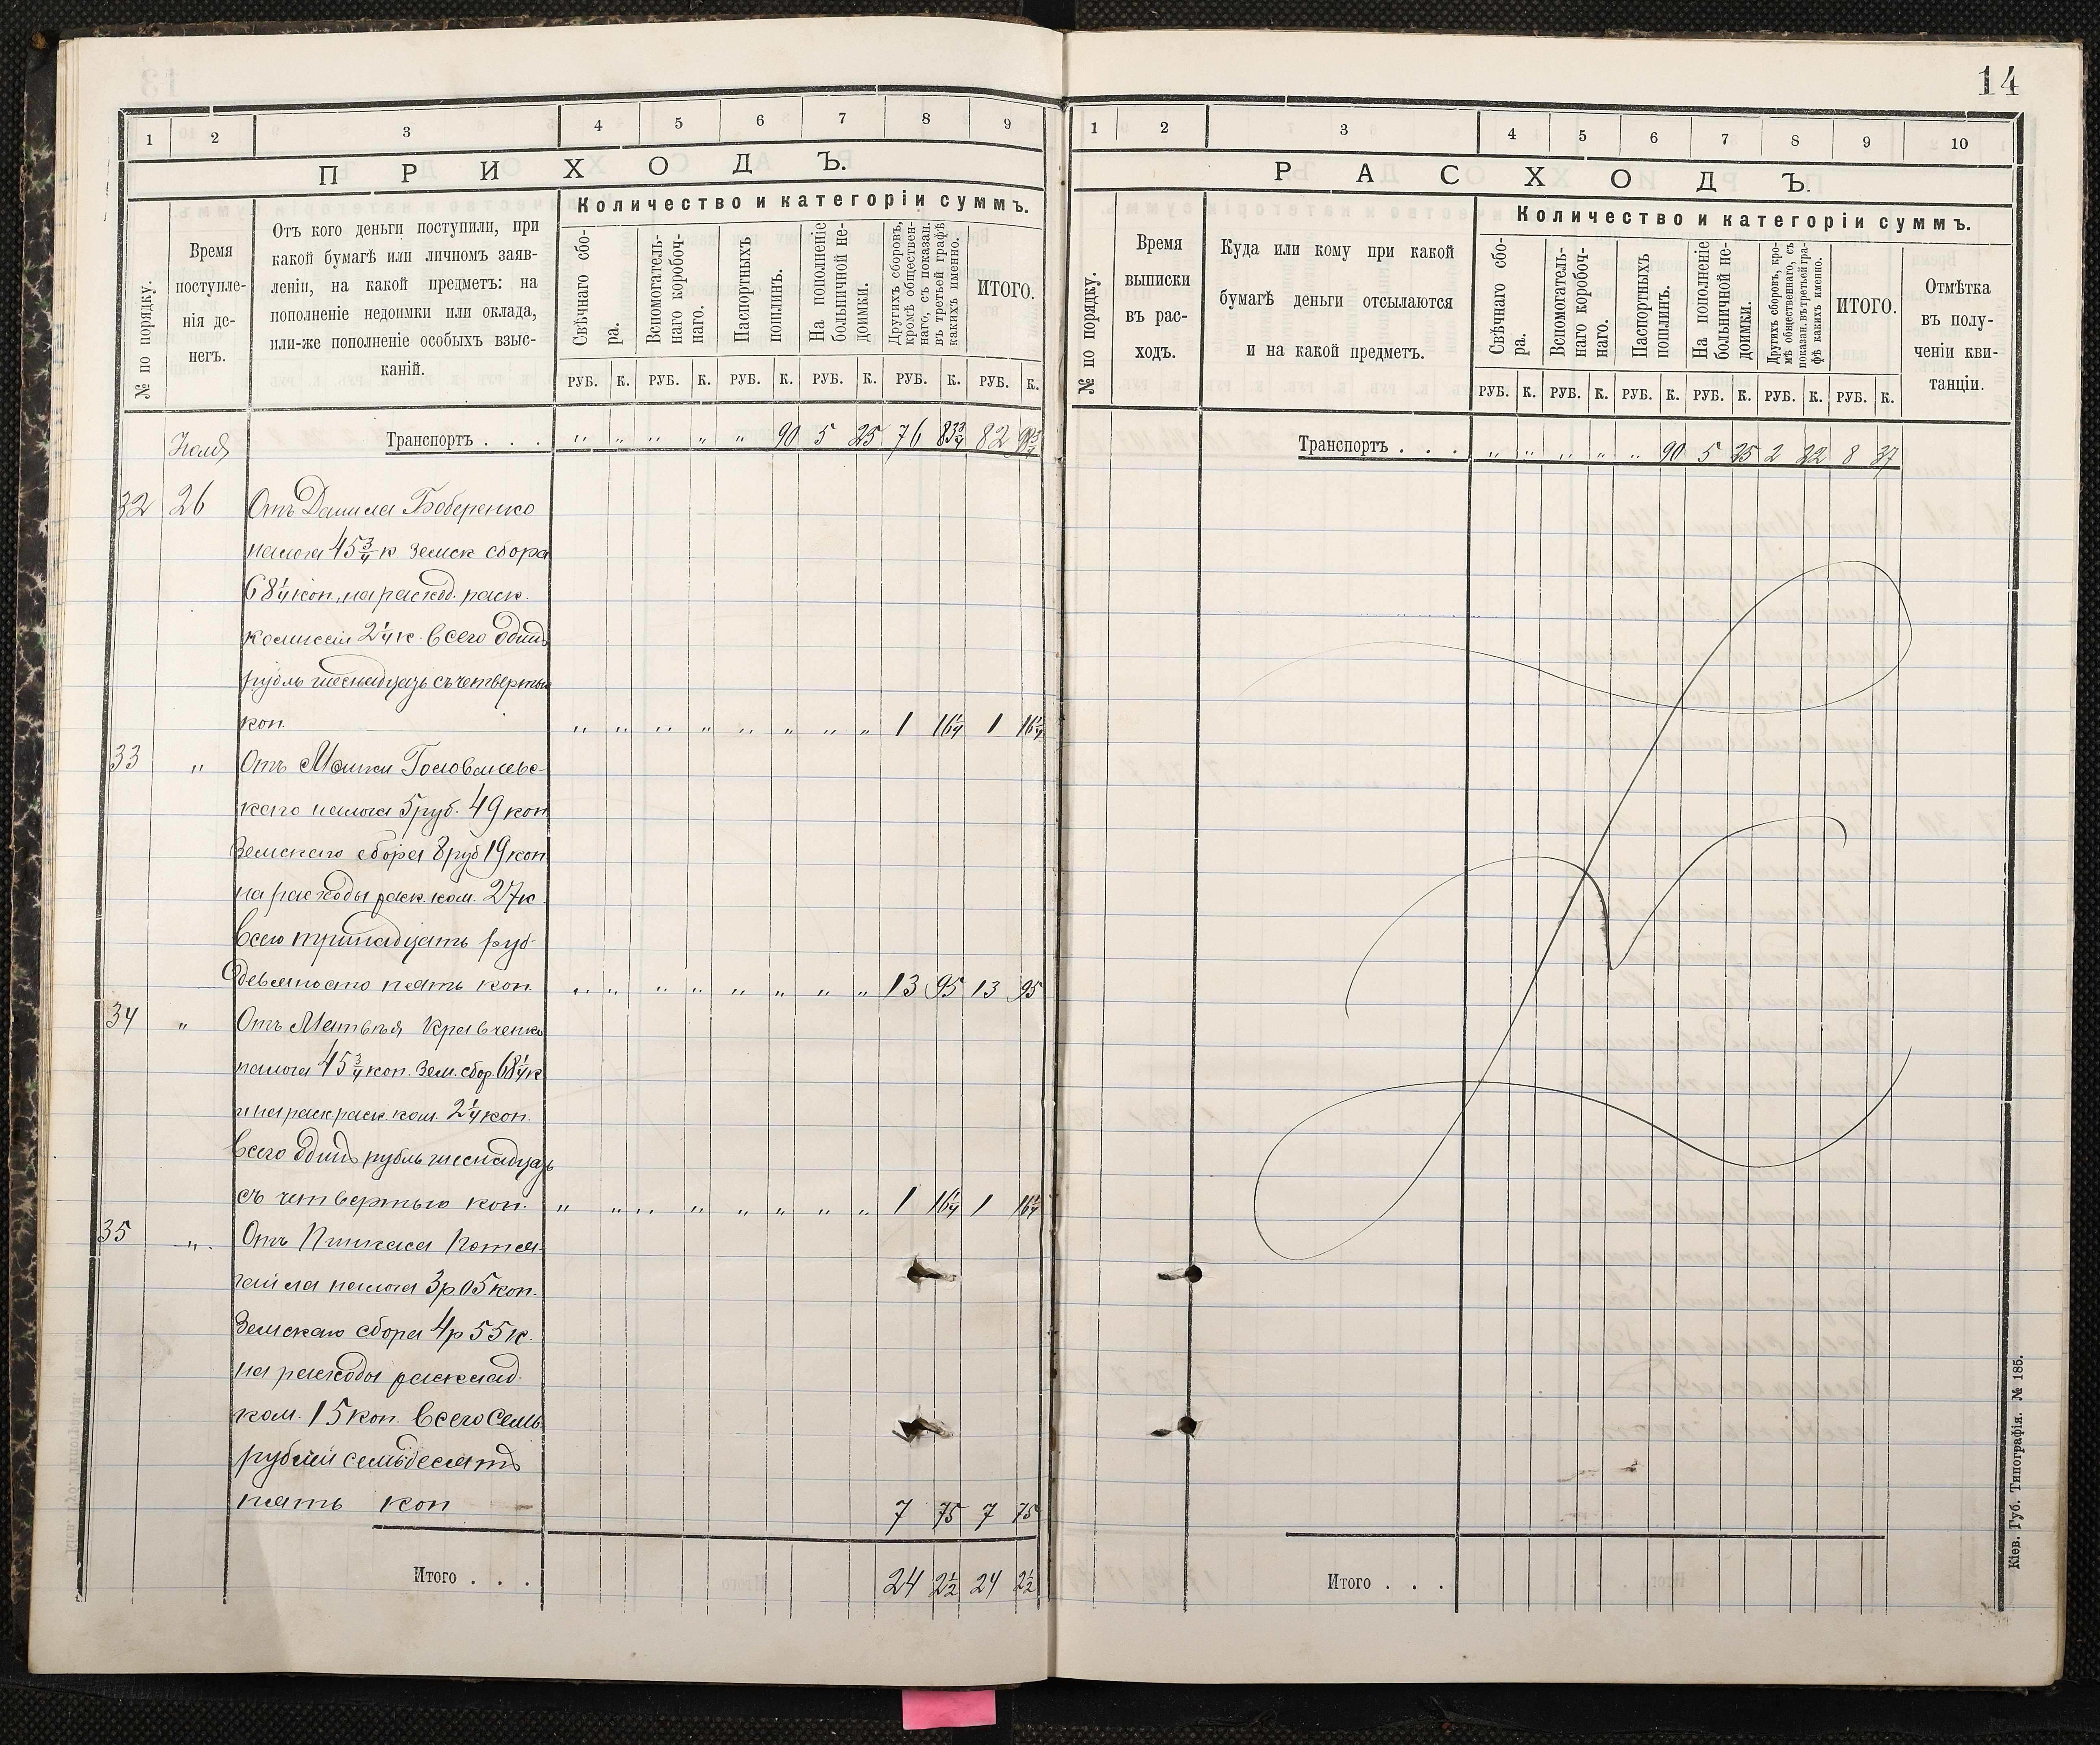 1 2 3 4 5 6 7 8 9
ПРИХОДЪ.
№ по порядку.
Время поступле-
нія де-
негъ.
Отъ кого деньги поступили, при
какой бумагѣ или личномъ заяв-
леніи, на какой предметъ: на
пополненіе недоимки или оклада,
или-же пополненіе особыхъ взыс-
каній.
Количество и категоріи суммъ.
Свѣчнаго сбо-
ра.
Вспомогатель-
наго коробоч-
наго.
Паспортныхъ
пошлинъ.
На пополненіе
больничной не-
доимки.
Другихъ сборовъ,
кромѣ обществен-
наго, съ показан.
въ третьей графѣ
какихъ именно.
ИТОГО.
РУБ. К. РУБ. К. РУБ. К. РУБ. К. РУБ. К. РУБ. К.
Транспортъ . . . „ „ „ „ „ 90 5 25 76 83 3/4 82 98 3/4
32 26 Отъ Данила Боберенко
налога 45 3/4 к земск сбора
68 1/4 коп, на расход. раск.
комисеіи 2 1/4 к. всего одинъ
рубль шеснадцать съ четвертью
коп. „ „ „ „ „ „ „ „ 1 16 1/4 1 16 1/4
33 „ Отъ Мошки Головансвс-
каго налога 5 руб. 49 коп
Земскаго сбора 8 руб 19 коп.
на расходы раск. ком. 27 к.
всего тринадцать руб
девяносто пять коп. „ „ „ „ „ „ „ „ 13 95 13 95
34 „ Отъ Матвѣя Кравченко
налога 45 3/4 коп. Зем. сбор. 68 1/4 к
и на раск раск. ком. 2 1/4 коп.
всего одинъ рубль шеснадцать
съ четвертью коп. „ „ „ „ „ „ „ „ 1 16 1/4 1 16 1/4
35 „ Отъ Пинкаса
налога 3 р. 05 коп.
Земскаго сбора 4 р 55 к.
на расходы расклад.
ком. 15 коп. всего семь
рублей семьдесятъ
пять коп 7 75 7 75
Итого . . . 24 2 1/2 24 2 1/2
14
1 2 3 4 5 6 7 8 9 10
РАСХОДЪ.
№ по порядку.
Время
выписки
въ рас-
ходъ.
Куда или кому при какой
бумагѣ деньги отсылаются
и на какой предметъ.
Количество и категоріи суммъ.
Свѣчнаго сбо-
ра.
Вспомогатель-
наго коробоч-
наго.
Паспортныхъ
пошлинъ.
На пополненіе
больничной не-
доимки.
Другихъ сборовъ, кро-
мѣ общественнаго, съ
показан. въ третьей гра-
фѣ какихъ именно.
ИТОГО.
Отмѣтка
въ полу-
ченіи кви-
танціи.
РУБ. К. РУБ. К. РУБ. К. РУБ. К. РУБ. К. РУБ. К.
Транспортъ . . . „ „ „ „ „ 90 5 25 2 22 8 37
Итого . . .
Кіев. Губ. Типографія. № 185.